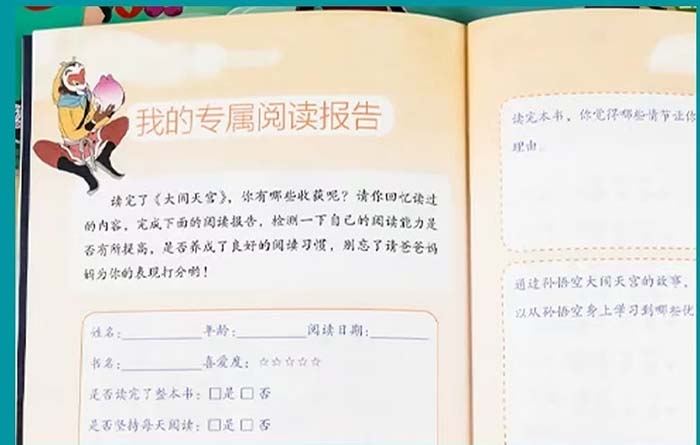 我的专属阅读报告
读完了《大闹天宫》，你有哪些收获呢？请你回忆读过
的内容，完成下面的阅读报告，检测一下自己的阅读能力是
否有所提高，是否养成了良好的阅读习惯，别忘了请爸爸妈
妈为你的表现打分哟！
姓名：________年龄：________阅读日期：________
书名：________喜爱度：☆☆☆☆☆
是否读完了整本书：□是 □否
是否坚持每天阅读：□是 □否
读完本书，你觉得哪些情节让你
理由。
通过孙悟空大闹天宫的故事，
以从孙悟空身上学习到哪些优